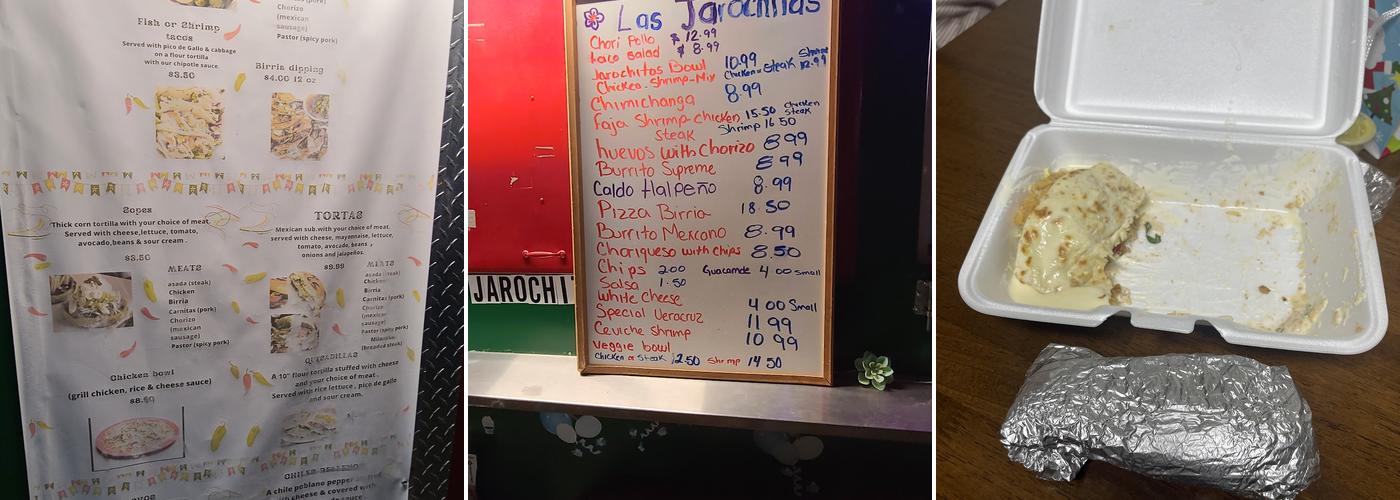 Chorizo
(mexican
sausage)
Pastor (spicy pork)
Fish or Shrimp
tacos
Served with pico de Gallo & cabbage
on a flour tortilla
with our chipotle sauce.
$3.50
Birria dipping
$4.00 12 oz
Sopes
Thick corn tortilla with your choice of meat.
Served with cheese,lettuce, tomato,
avocado,beans & sour cream .
$3.50
MEATS
asada (steak)
Chicken
Birria
Carnitas (pork)
Chorizo
(mexican
sausage)
Pastor (spicy pork)
TORTAS
Mexican sub.with your choice of meat.
served with cheese, mayonnaise, lettuce,
tomato, avocado, beans ,
onions and jalapeños.
$9.99
MEATS
asada (steak)
Chicken
Birria
Carnitas (pork)
Chorizo
(mexican
sausage)
Pastor (spicy pork)
Milanesa
(breaded steak)
Chicken bowl
(grill chicken, rice & cheese sauce)
$8.99
QUESADILLAS
A 10" flour tortilla stuffed with cheese
and your choice of meat .
Served with rice lettuce , pico de gallo
and sour cream.
A chile poblano pepper
with cheese & covered with
Las Jarochitas
Chori Pollo $ 12.99
taco salad $ 8.99
Jarochitos Bowl 10.99 Shrimp
Chicken-Shrimp-Mix Chicken or Steak 12.99
Chimichanga 8.99
Faja Shrimp-chicken 15.50 Chicken
Steak steak
Shrimp 16 50
huevos with Chorizo 8 99
Burrito Supreme 8 99
Caldo tlalpeño 8.99
Pizza Birria 18.50
Burrito Mexcano 8.99
Choriqueso with chips 8.50
Chips 2.00 Guacamole 4 00 small
Salsa 1.50
White Cheese 4 00 Small
Special Veracruz 11 99
Ceviche Shrimp 10 99
veggie bowl
Chicken or Steak 12.50 Shrimp 14 50
JAROCHIT